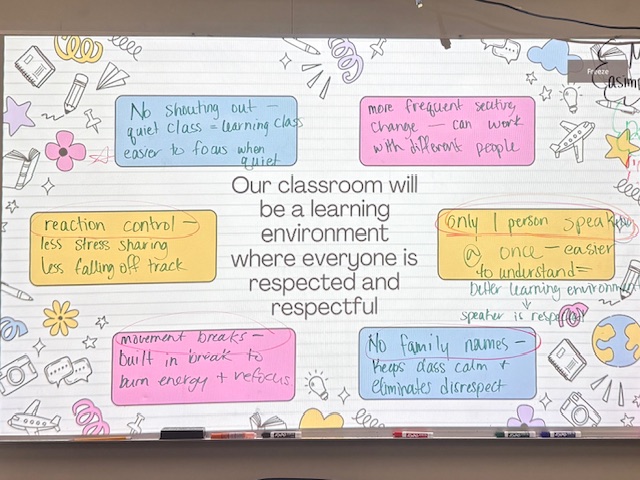 Freeze
No shouting out —
quiet class = learning class
easier to focus when
quiet
more frequent seating
change — can work
with different people
Our classroom will
be a learning
environment
where everyone is
respected and
respectful
reaction control —
less stress sharing
less falling off track
only 1 person speaks
@ once — easier
to understand =
better learning environment
speaker is respected
movement breaks —
built in break to
burn energy + refocus
No family names —
keeps class calm +
eliminates disrespect
EXPO
EXPO
EXPO
EXPO